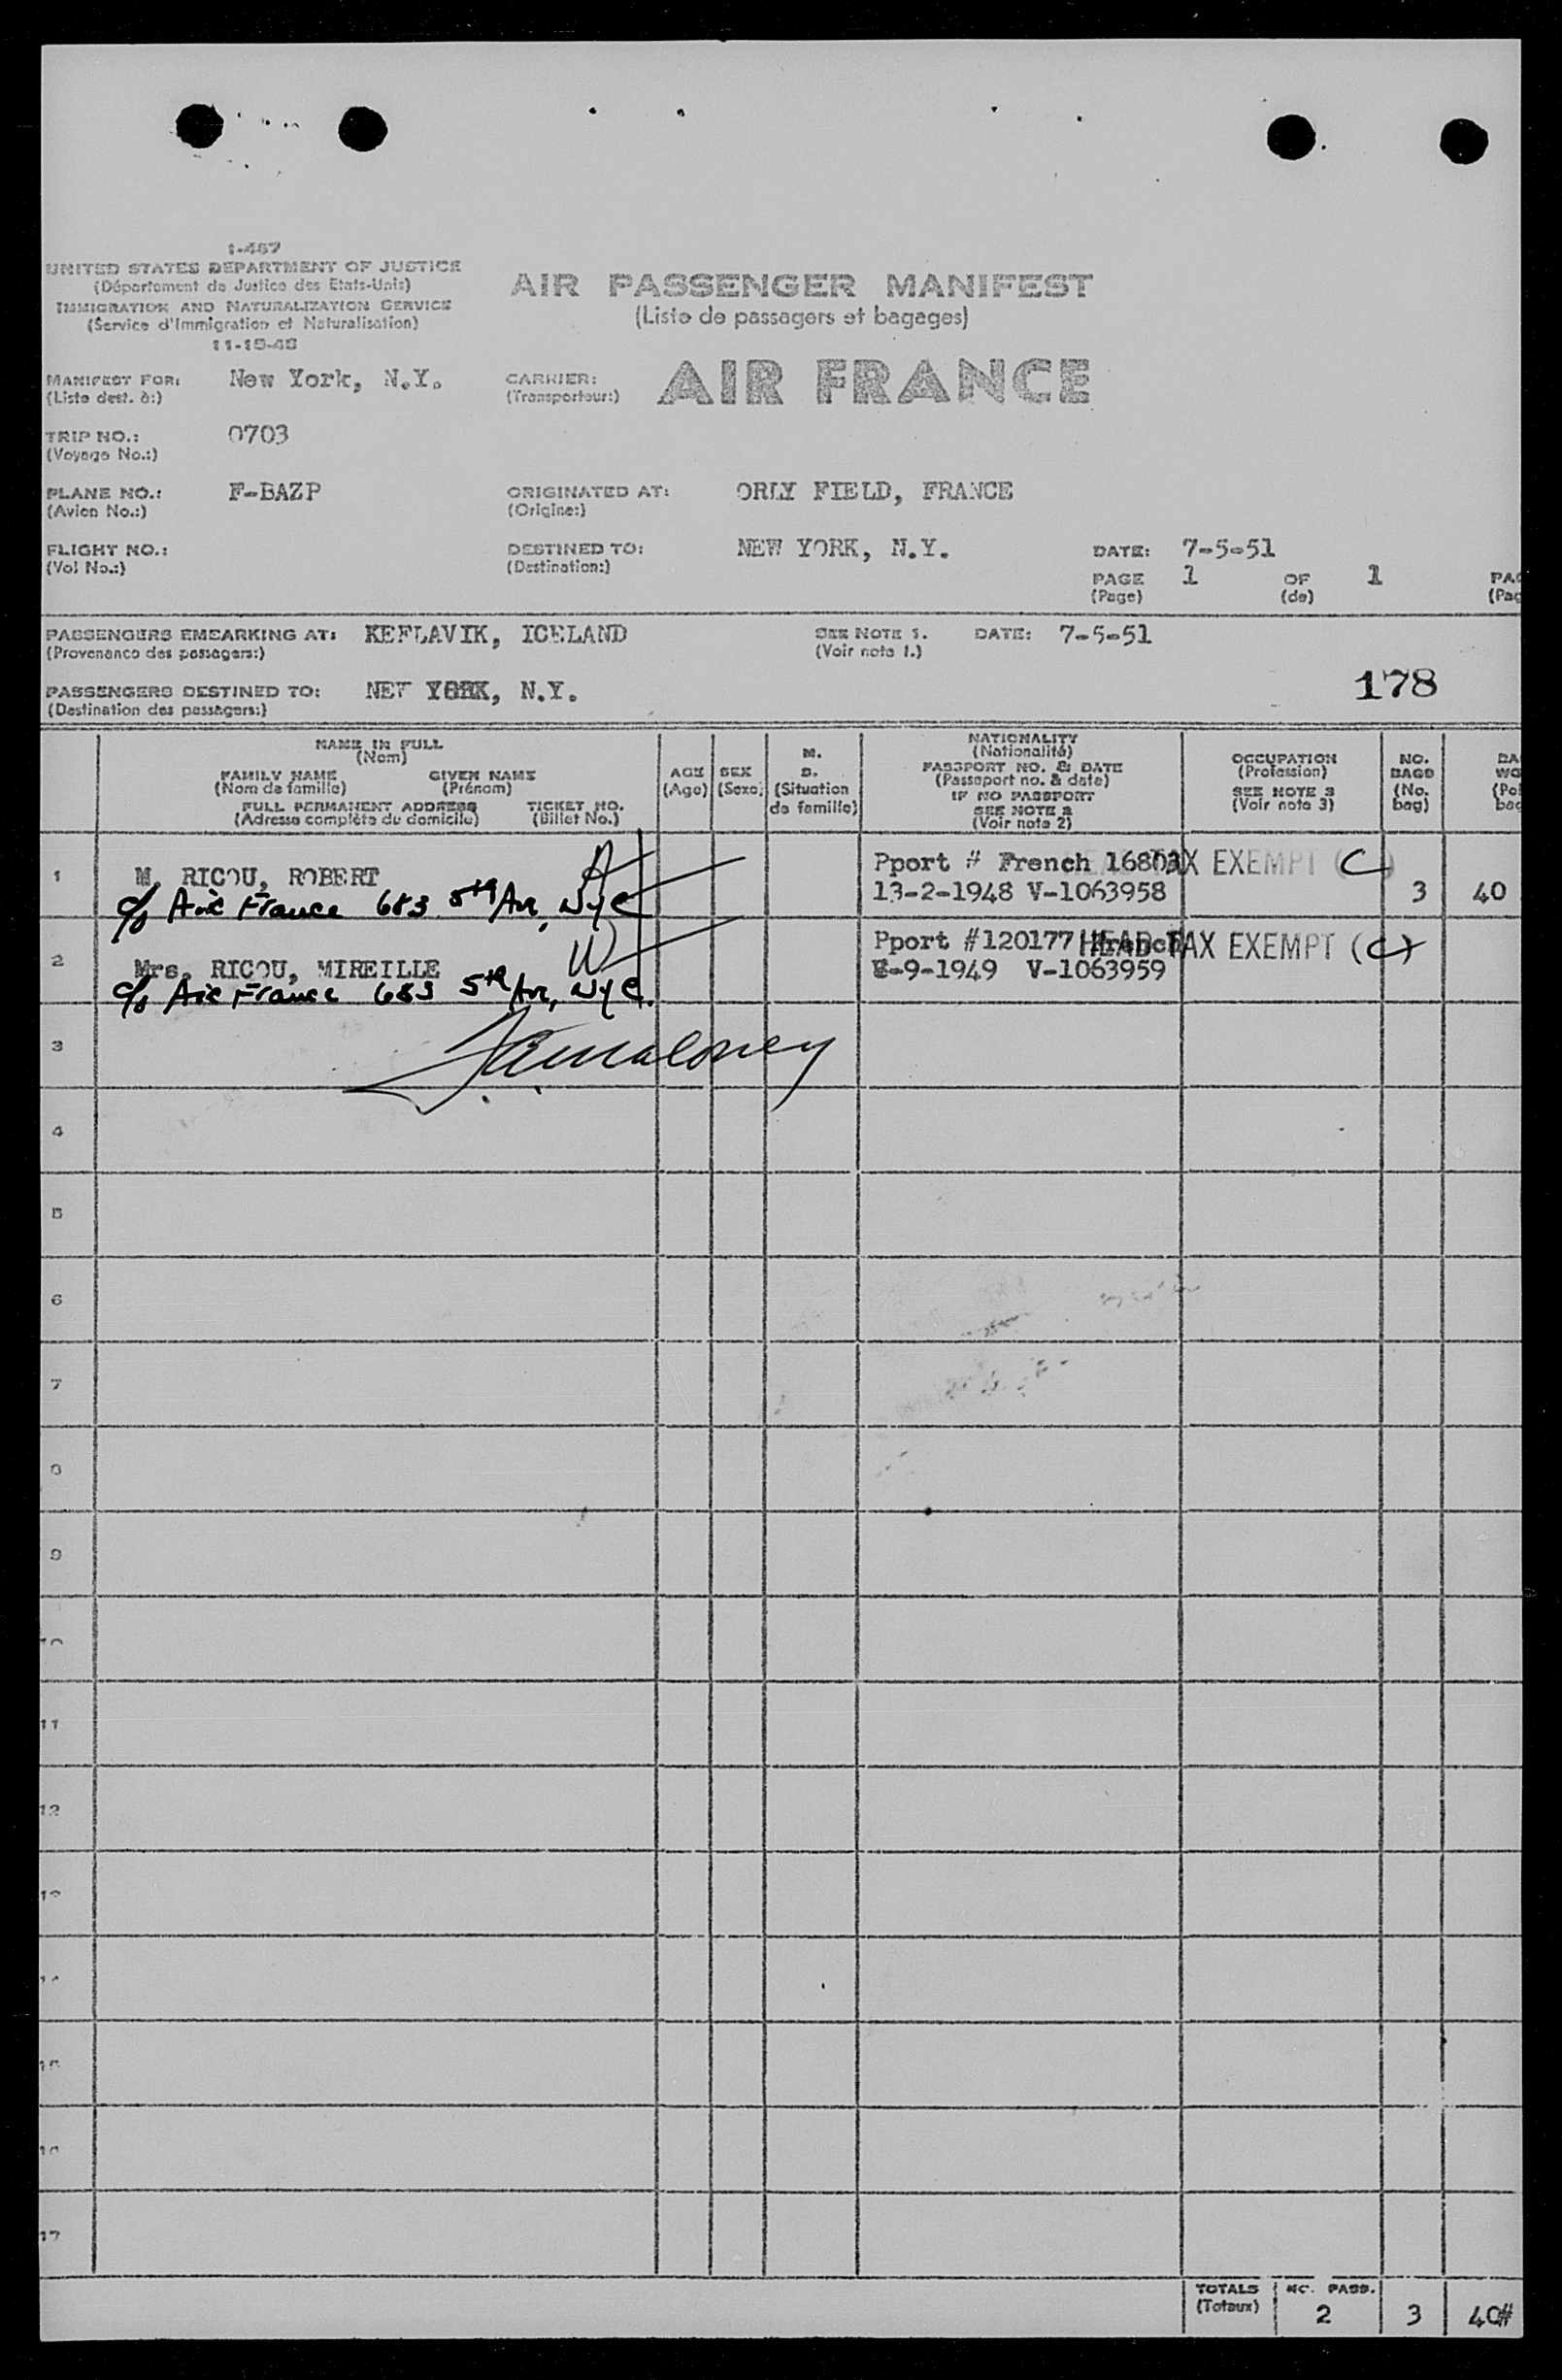 1-467
UNITED STATES DEPARTMENT OF JUSTICE
(Département de Justice des Etats-Unis)
IMMIGRATION AND NATURALIZATION SERVICE
(Service d'Immigration et Naturalisation)
11-15-48
AIR PASSENGER MANIFEST
(Liste de passagers et bagages)
MANIFEST FOR: New York, N.Y.
(Liste dest. à:)
CARRIER: AIR FRANCE
(Transporteur:)
TRIP NO.: 0703
(Voyage No.:)
PLANE NO.: F-BAZP
(Avion No.:)
ORIGINATED AT: ORLY FIELD, FRANCE
(Origine:)
FLIGHT NO.:
(Vol No.:)
DESTINED TO: NEW YORK, N.Y.
(Destination:)
DATE: 7-5-51
PAGE 1 OF 1
(Page) (de)
PASSENGERS EMBARKING AT: KEFLAVIK, ICELAND SEE NOTE 1. DATE: 7-5-51
(Provenance des passagers:) (Voir note 1.)
178
PASSENGERS DESTINED TO: NEW YORK, N.Y.
(Destination des passagers:)
NAME IN FULL
(Nom)
FAMILY NAME GIVEN NAME
(Nom de famille) (Prénom)
FULL PERMANENT ADDRESS TICKET NO.
(Adresse complète du domicile) (Billet No.)
AGE
(Age)
SEX
(Sexe)
M.
S.
(Situation
de famille)
NATIONALITY
(Nationalité)
PASSPORT NO. & DATE
(Passeport no. & date)
IF NO PASSPORT
SEE NOTE 2
(Voir note 2)
OCCUPATION
(Profession)
SEE NOTE 3
(Voir note 3)
NO.
BAGS
(No.
bag)
1 M. RICOU, ROBERT A Pport # French 16803 HEAD TAX EXEMPT (C)
c/o Air France 683 5th Ave, NYC 13-2-1948 V-1063958 3 40
2 Mrs. RICOU, MIREILLE W Pport #120177 French HEAD TAX EXEMPT (C)
c/o Air France 683 5th Ave, NYC. -9-1949 V-1063959
3 Maloney
4
5
6
7
8
9
10
11
12
13
14
15
16
17
TOTALS NO. PASS.
(Totaux) 2 3 40#